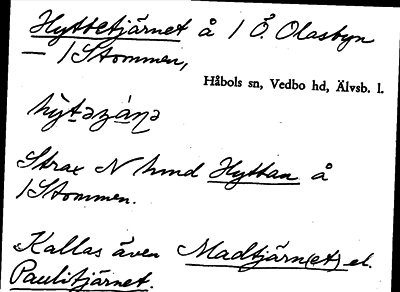 Hyttetjärnet å 1 Ö. Olasbyn
— 1 Stommen,
Håbols sn, Vedbo hd, Älvsb. l.
Strax N hmd Hyttan å
1 Stommen.
Kallas även Madtjärn(et) el.
Paulitjärnet.